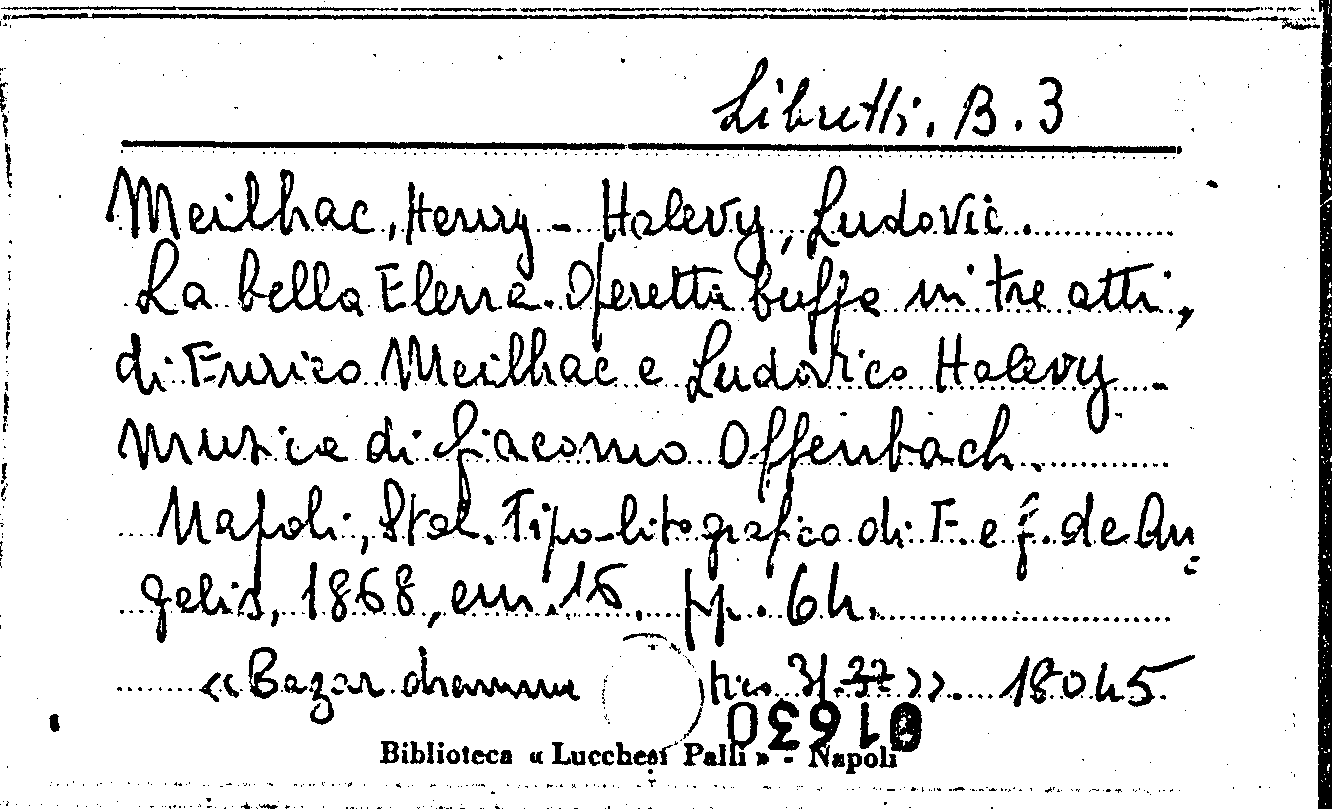 Libretti. B. 3
Meilhac, Henry - Halevy, Ludovic.
La bella Elena. Operetta buffa in tre atti,
di Enrico Meilhac e Ludovico Halevy -
Musica di Giacomo Offenbach.
Napoli, Stab. Tipo-litografico di F. e G. de An=
gelis, 1868, em. 16. pp. 64.
«Bazar dramma tico 31. ». 18045
Biblioteca « Lucchesi Palli » - Napoli